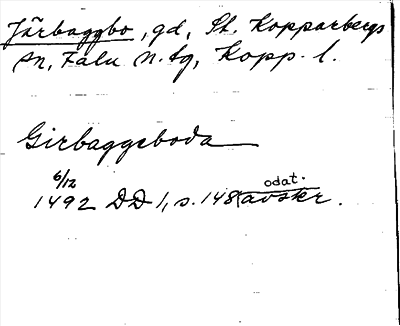 Järbaggbo, gd, St. Kopparbergs
sn, Falu n. tg, Kopp. l.
Girbaggeboda
6/12
1492 DD 1, s. 148 (odat. avskr.